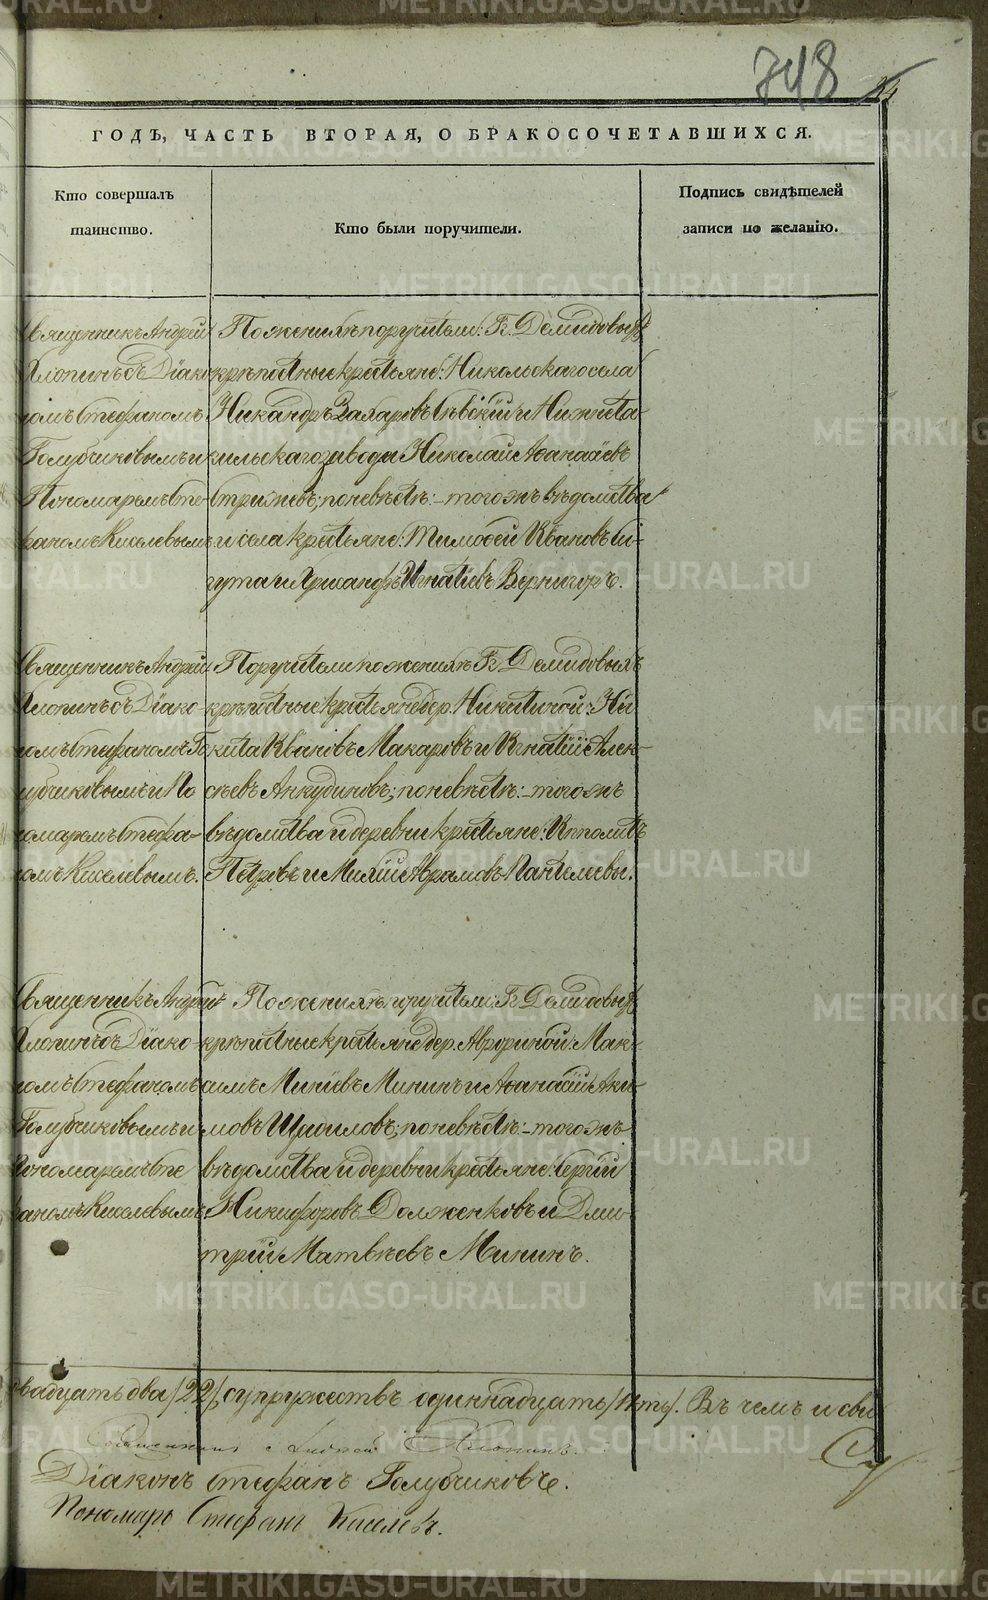 748
ГОДЪ, ЧАСТЬ ВТОРАЯ, О БРАКОСОЧЕТАВШИХСЯ.
Кто совершалъ
таинство.
Кто были поручители.
Подпись свидѣтелей
записи по желанію.
Священникъ Андрей
Хлопинъ съ Діако-
номъ Стефаномъ
Голубчиковымъ и
Пономаремъ Сте-
фаномъ Киселевымъ.
По женихѣ поручители: Гг. Демидовыхъ
крѣпостные крестьяне: Никольскаго села
Никандръ Захаровъ и Нижнета-
гильскаго завода Николай Аѳанасіевъ
Стрижевъ; по невѣстѣ: того жъ вѣдомства
и села крестьяне: Тимоѳей Ивановъ Си-
гута и Хрисанфъ Игнатіевъ Вернигоръ.
Священникъ Андрей
Хлопинъ съ Діако-
номъ Стефаномъ Го-
лубчиковымъ и По-
номаремъ Стефа-
номъ Киселевымъ.
Поручители по женихѣ Гг. Демидовыхъ
крѣпостные крестьяне дер. Никитиной: Ни-
кита Ивановъ Макаровъ и Игнатій Алек-
сѣевъ Анкудиновъ; по невѣстѣ: того жъ
вѣдомства и деревни крестьяне: Ипполитъ
Петровъ и Милій Аврамовъ Пантелеевы.
Священникъ Андрей
Хлопинъ съ Діако-
номъ Стефаномъ
Голубчиковымъ и
Пономаремъ Сте-
фаномъ Киселевымъ.
По женихѣ поручители: Гг. Демидовыхъ
крѣпостные крестьяне дер. Мак-
симъ Миніевъ Мининъ и Аѳанасій Аки-
мовъ; по невѣстѣ: того жъ
вѣдомства и деревни крестьяне: Сергій
Никифоровъ Долженковъ и Дми-
трій Матвѣевъ Мининъ.
двадцать два /22/, супружествъ одиннадцать /11ть/. Въ чемъ и сви-
Священникъ Андрей Хлопинъ.
Діаконъ Стефанъ Голубчиковъ.
Пономарь Стефанъ Киселевъ.
METRIKI.GASO-URAL.RU